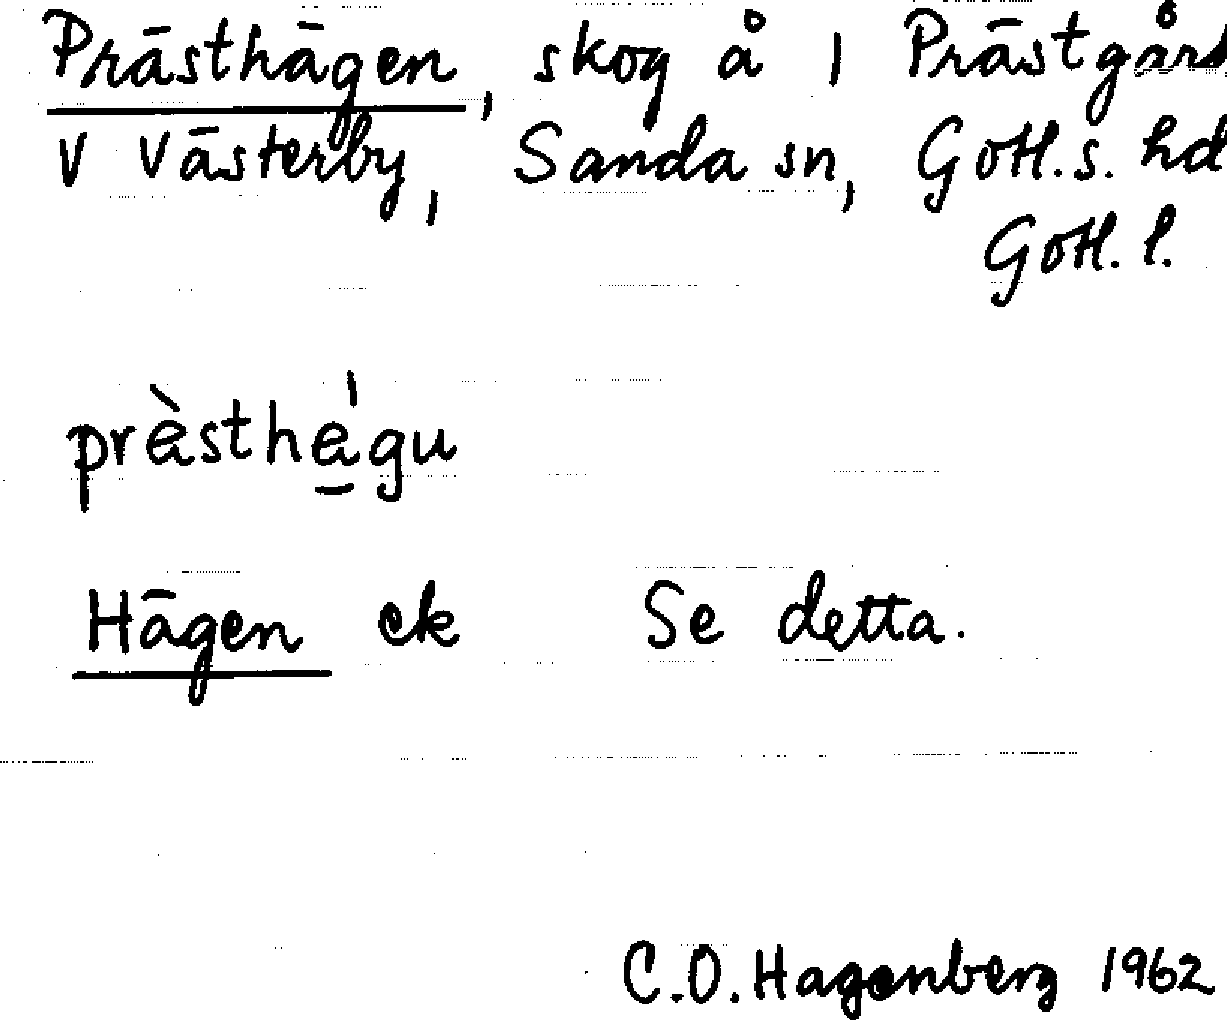 Prästhägen, skog å 1 Prästgård
V Västerby, Sanda sn, Gotl.s. hd
Gotl. l.
prèsthé̲gu
Hägen ek Se detta.
C.O. Hagenberg 1962